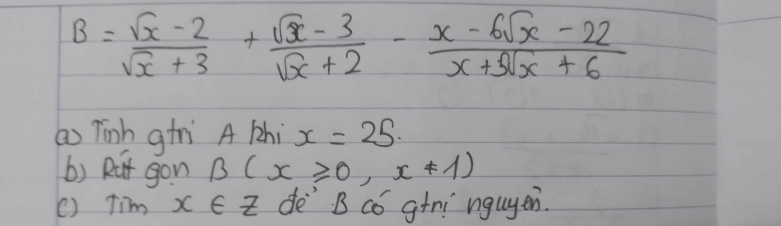 B = \frac{\sqrt{x} - 2}{\sqrt{x} + 3} + \frac{\sqrt{x} - 3}{\sqrt{x} + 2} - \frac{x - 6\sqrt{x} - 22}{x + 5\sqrt{x} + 6}
a) Tính gtrị A khi x = 25.
b) Rút gọn B ( x ≥ 0, x ≠ 1)
c) Tìm x ∈ Z để B có gtrị nguyên.